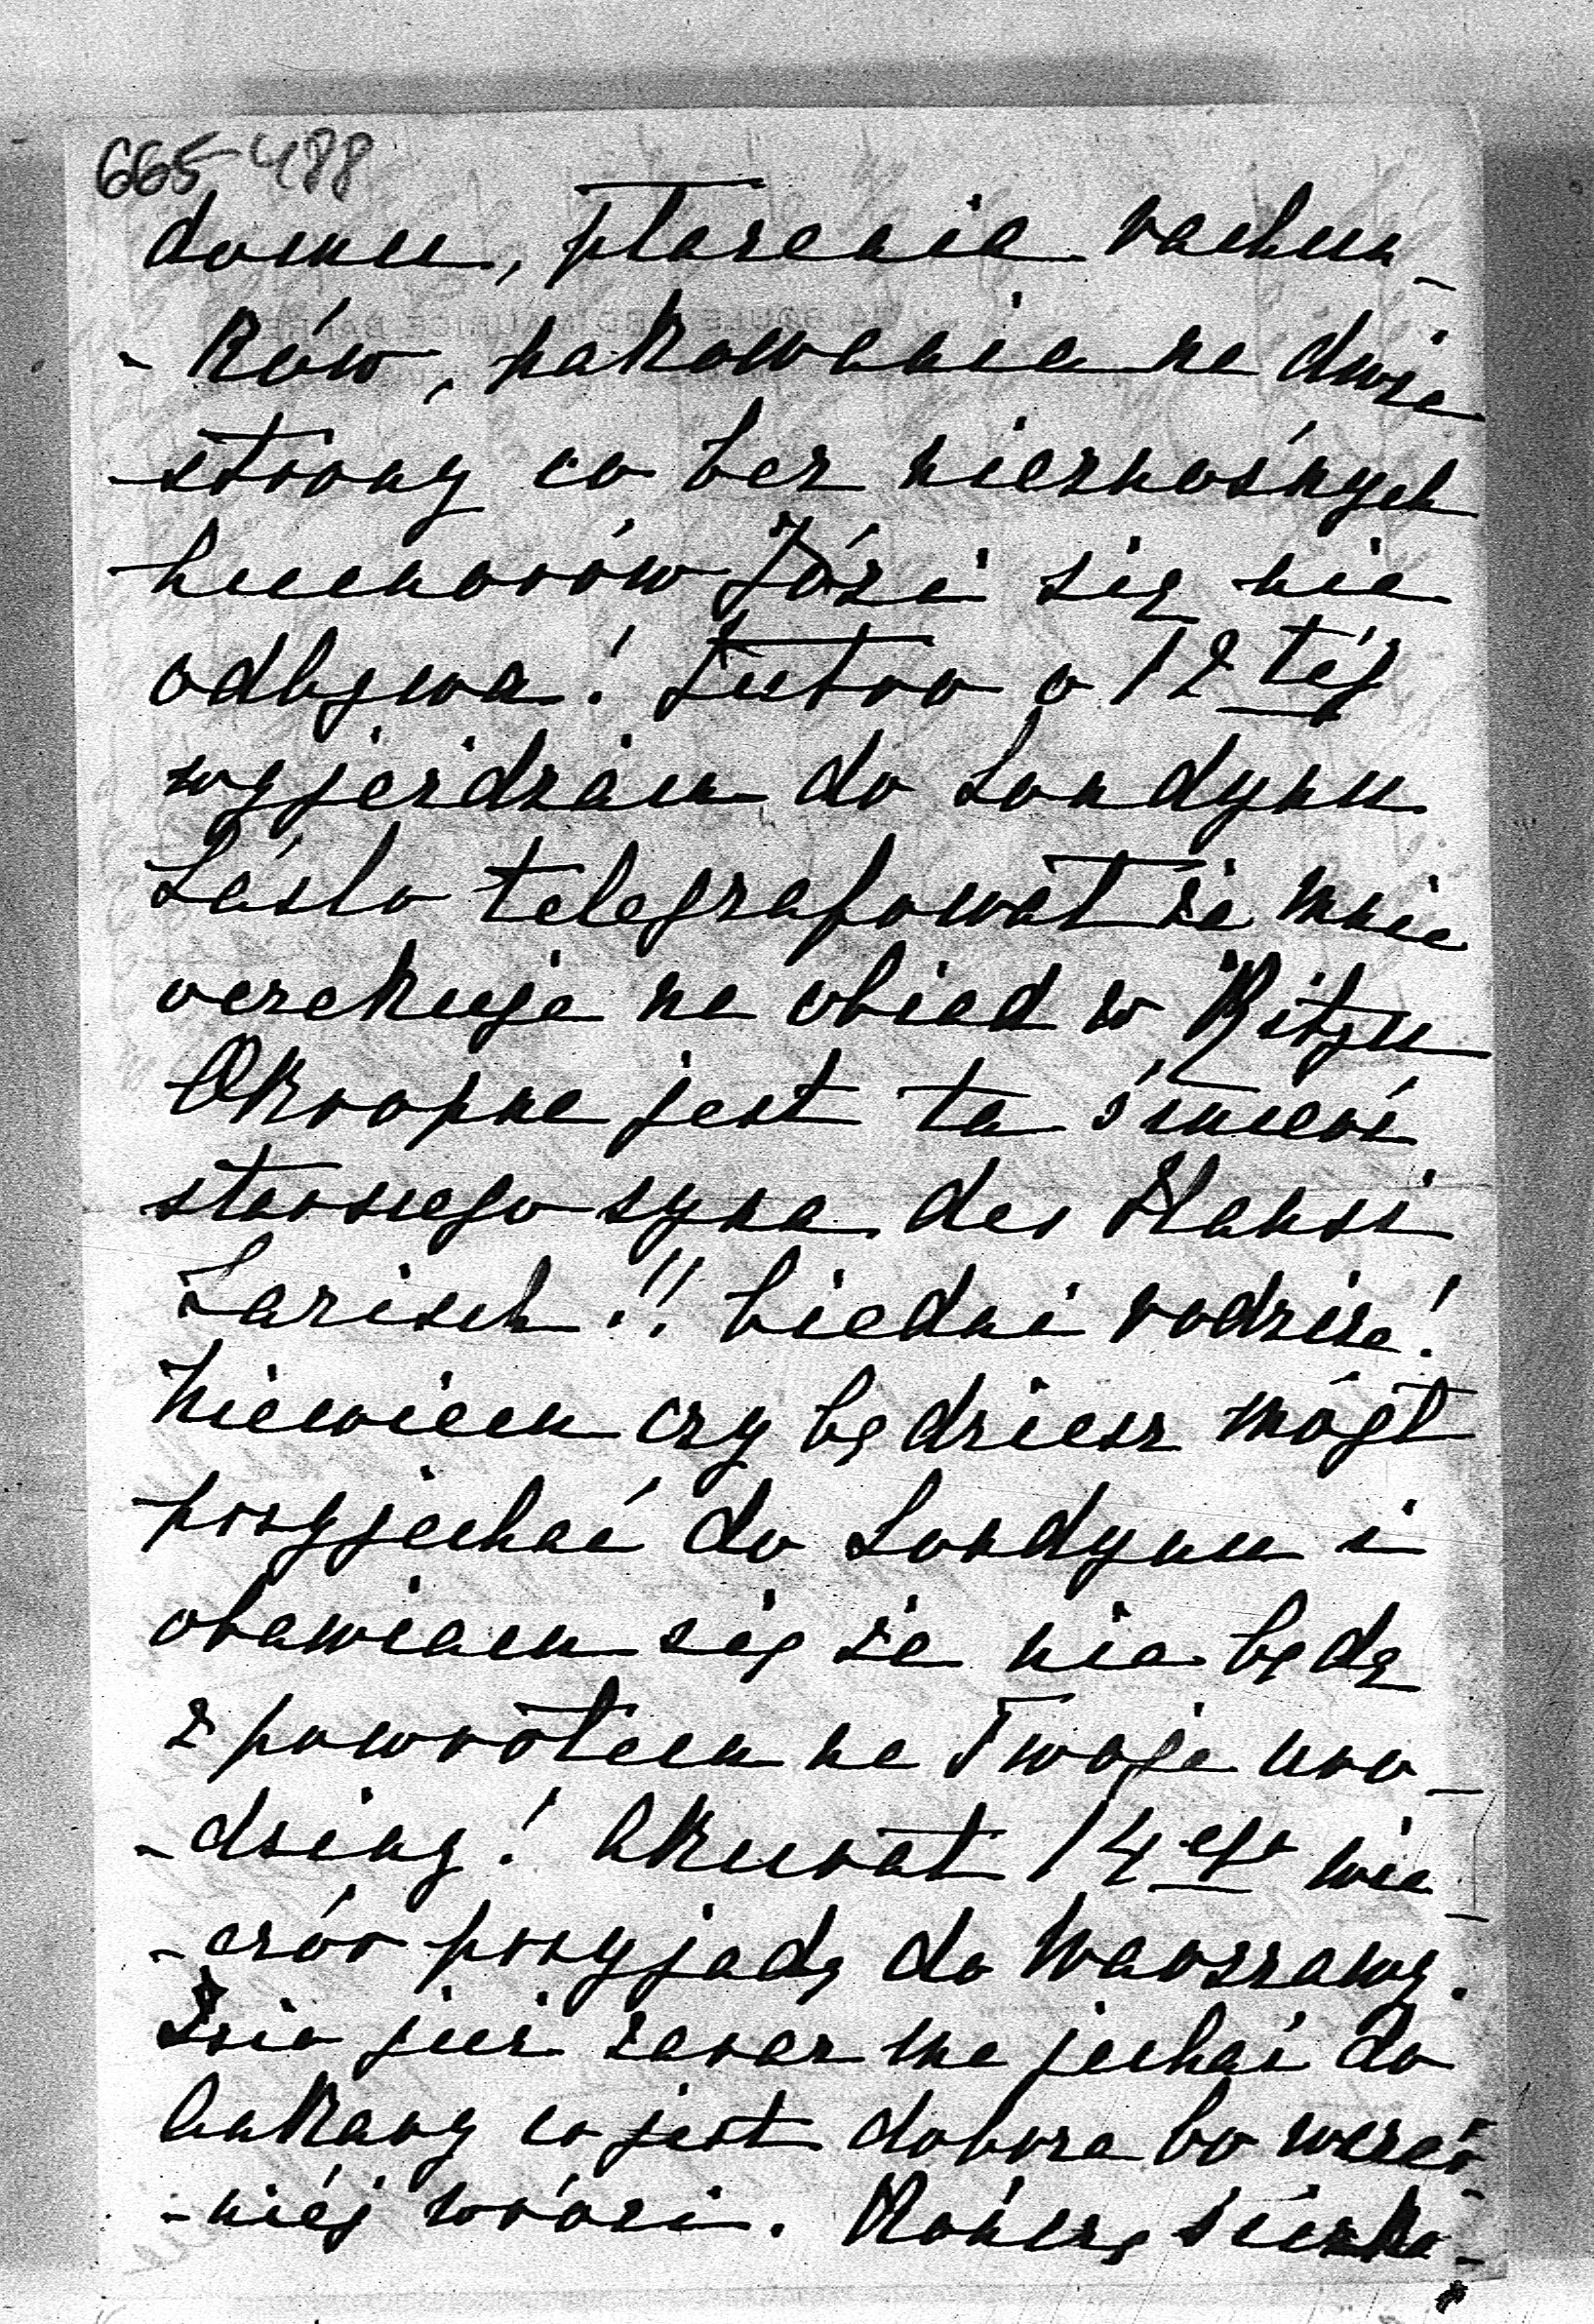 665-488
domu, płacenie rachun-
-ków, pakowania na dwie
strony co bez nieznośnych
humorów Józi się nie
odbywa! Jutro o 12 téj
wyjeżdżam do Londynu
László telegrafował że mnie
oczekuje na obiad w Ritzu
Okropne jest ta śmierć
starszego syna der Hansi
Larisch!! biedni rodzice!
Niewiem czy będziesz mógł
przyjechać do Londynu i
obawiam się że nie będę
z powrotem na Twoje uro-
-dziny! Akurat 14 ego wie-
-czór przyjadę do Warszawy.
Izio już zaraz ma jechać do
Ankary co jest dobrze bo wcześ-
-niéj wróci. Kończę ściska-